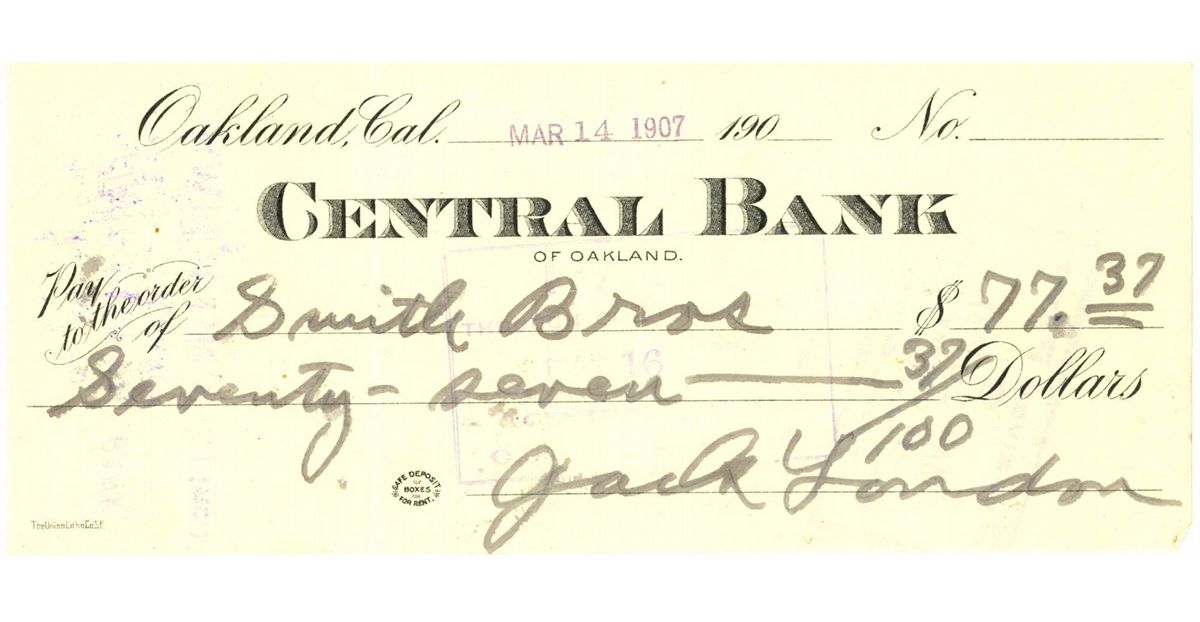 Oakland, Cal. MAR 14 1907 190 No.
CENTRAL BANK
OF OAKLAND.
Pay to the order of Smith Bros $ 77.37
Seventy-seven 37/100 Dollars
16
Jack London
SAFE DEPOSIT BOXES FOR RENT.
The Union Litho Co. S.F.